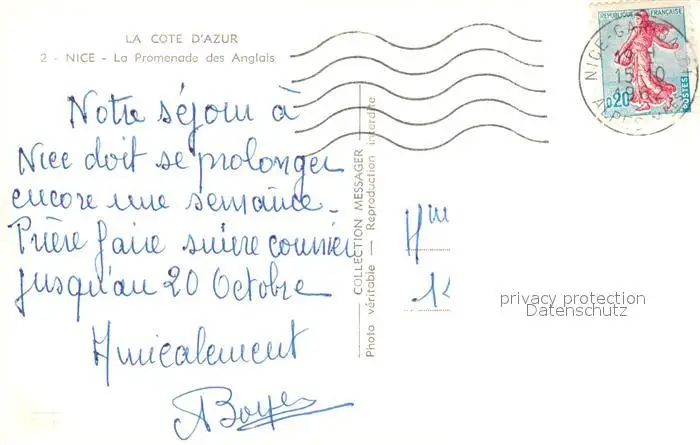 LA COTE D'AZUR
2 - NICE - La Promenade des Anglais
Notre séjour à
Nice doit se prolonger
encore une semaine.
Prière faire suivre courrier
jusqu'au 20 Octobre
Amicalement
ABoyer
COLLECTION MESSAGER
Photo véritable — Reproduction interdite
REPUBLIQUE FRANÇAISE
0,20
POSTES
NICE-GA
19 H
15-10
1962
ALPES
privacy protection
Datenschutz